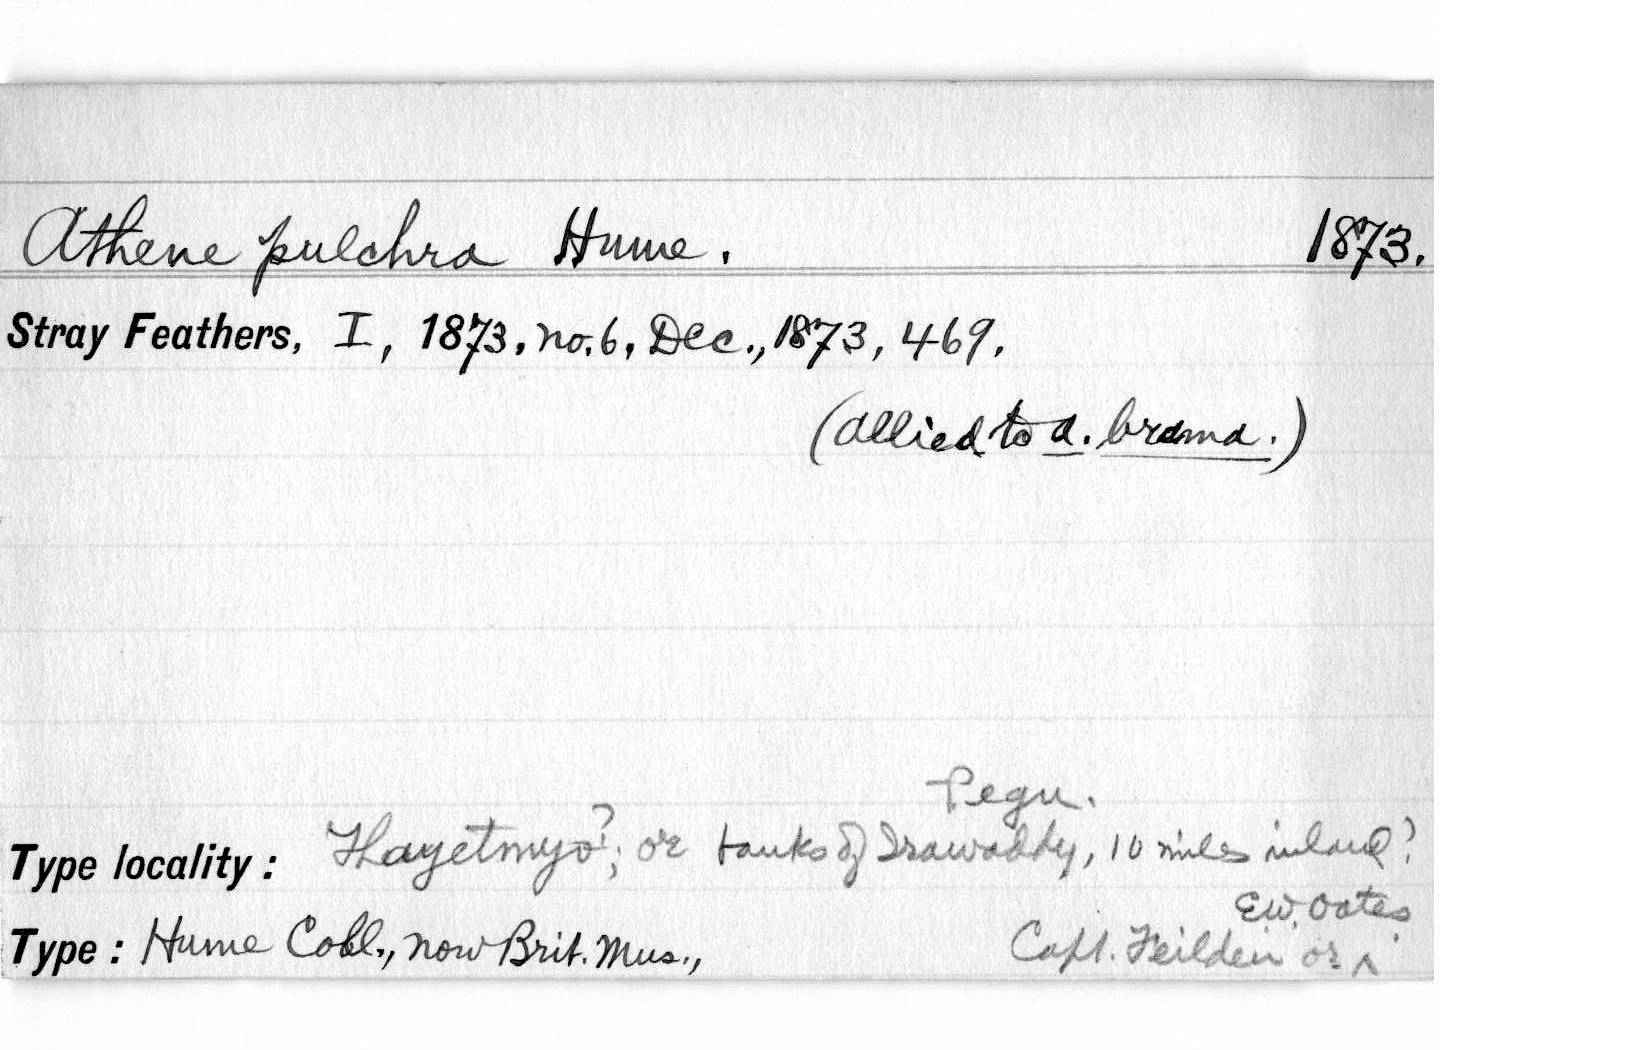 Athene pulchra Hume. 1873.
Stray Feathers, I, 1873, no. 6, Dec., 1873, 469.
(allied to a. brama.)
Pegu.
Type locality: Thayetmyo?; or banks of Irawaddy, 10 miles inland?
E.W. Oates
Type: Hume Coll., now Brit. Mus., Capt. Feilden or ^